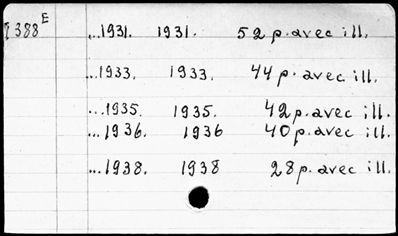 1388E ...1931. 1931. 52 p. avec ill.
...1933. 1933. 44 p. avec ill.
...1935. 1935. 42 p. avec ill.
...1936. 1936 40 p. avec ill.
...1938. 1938 28 p. avec ill.